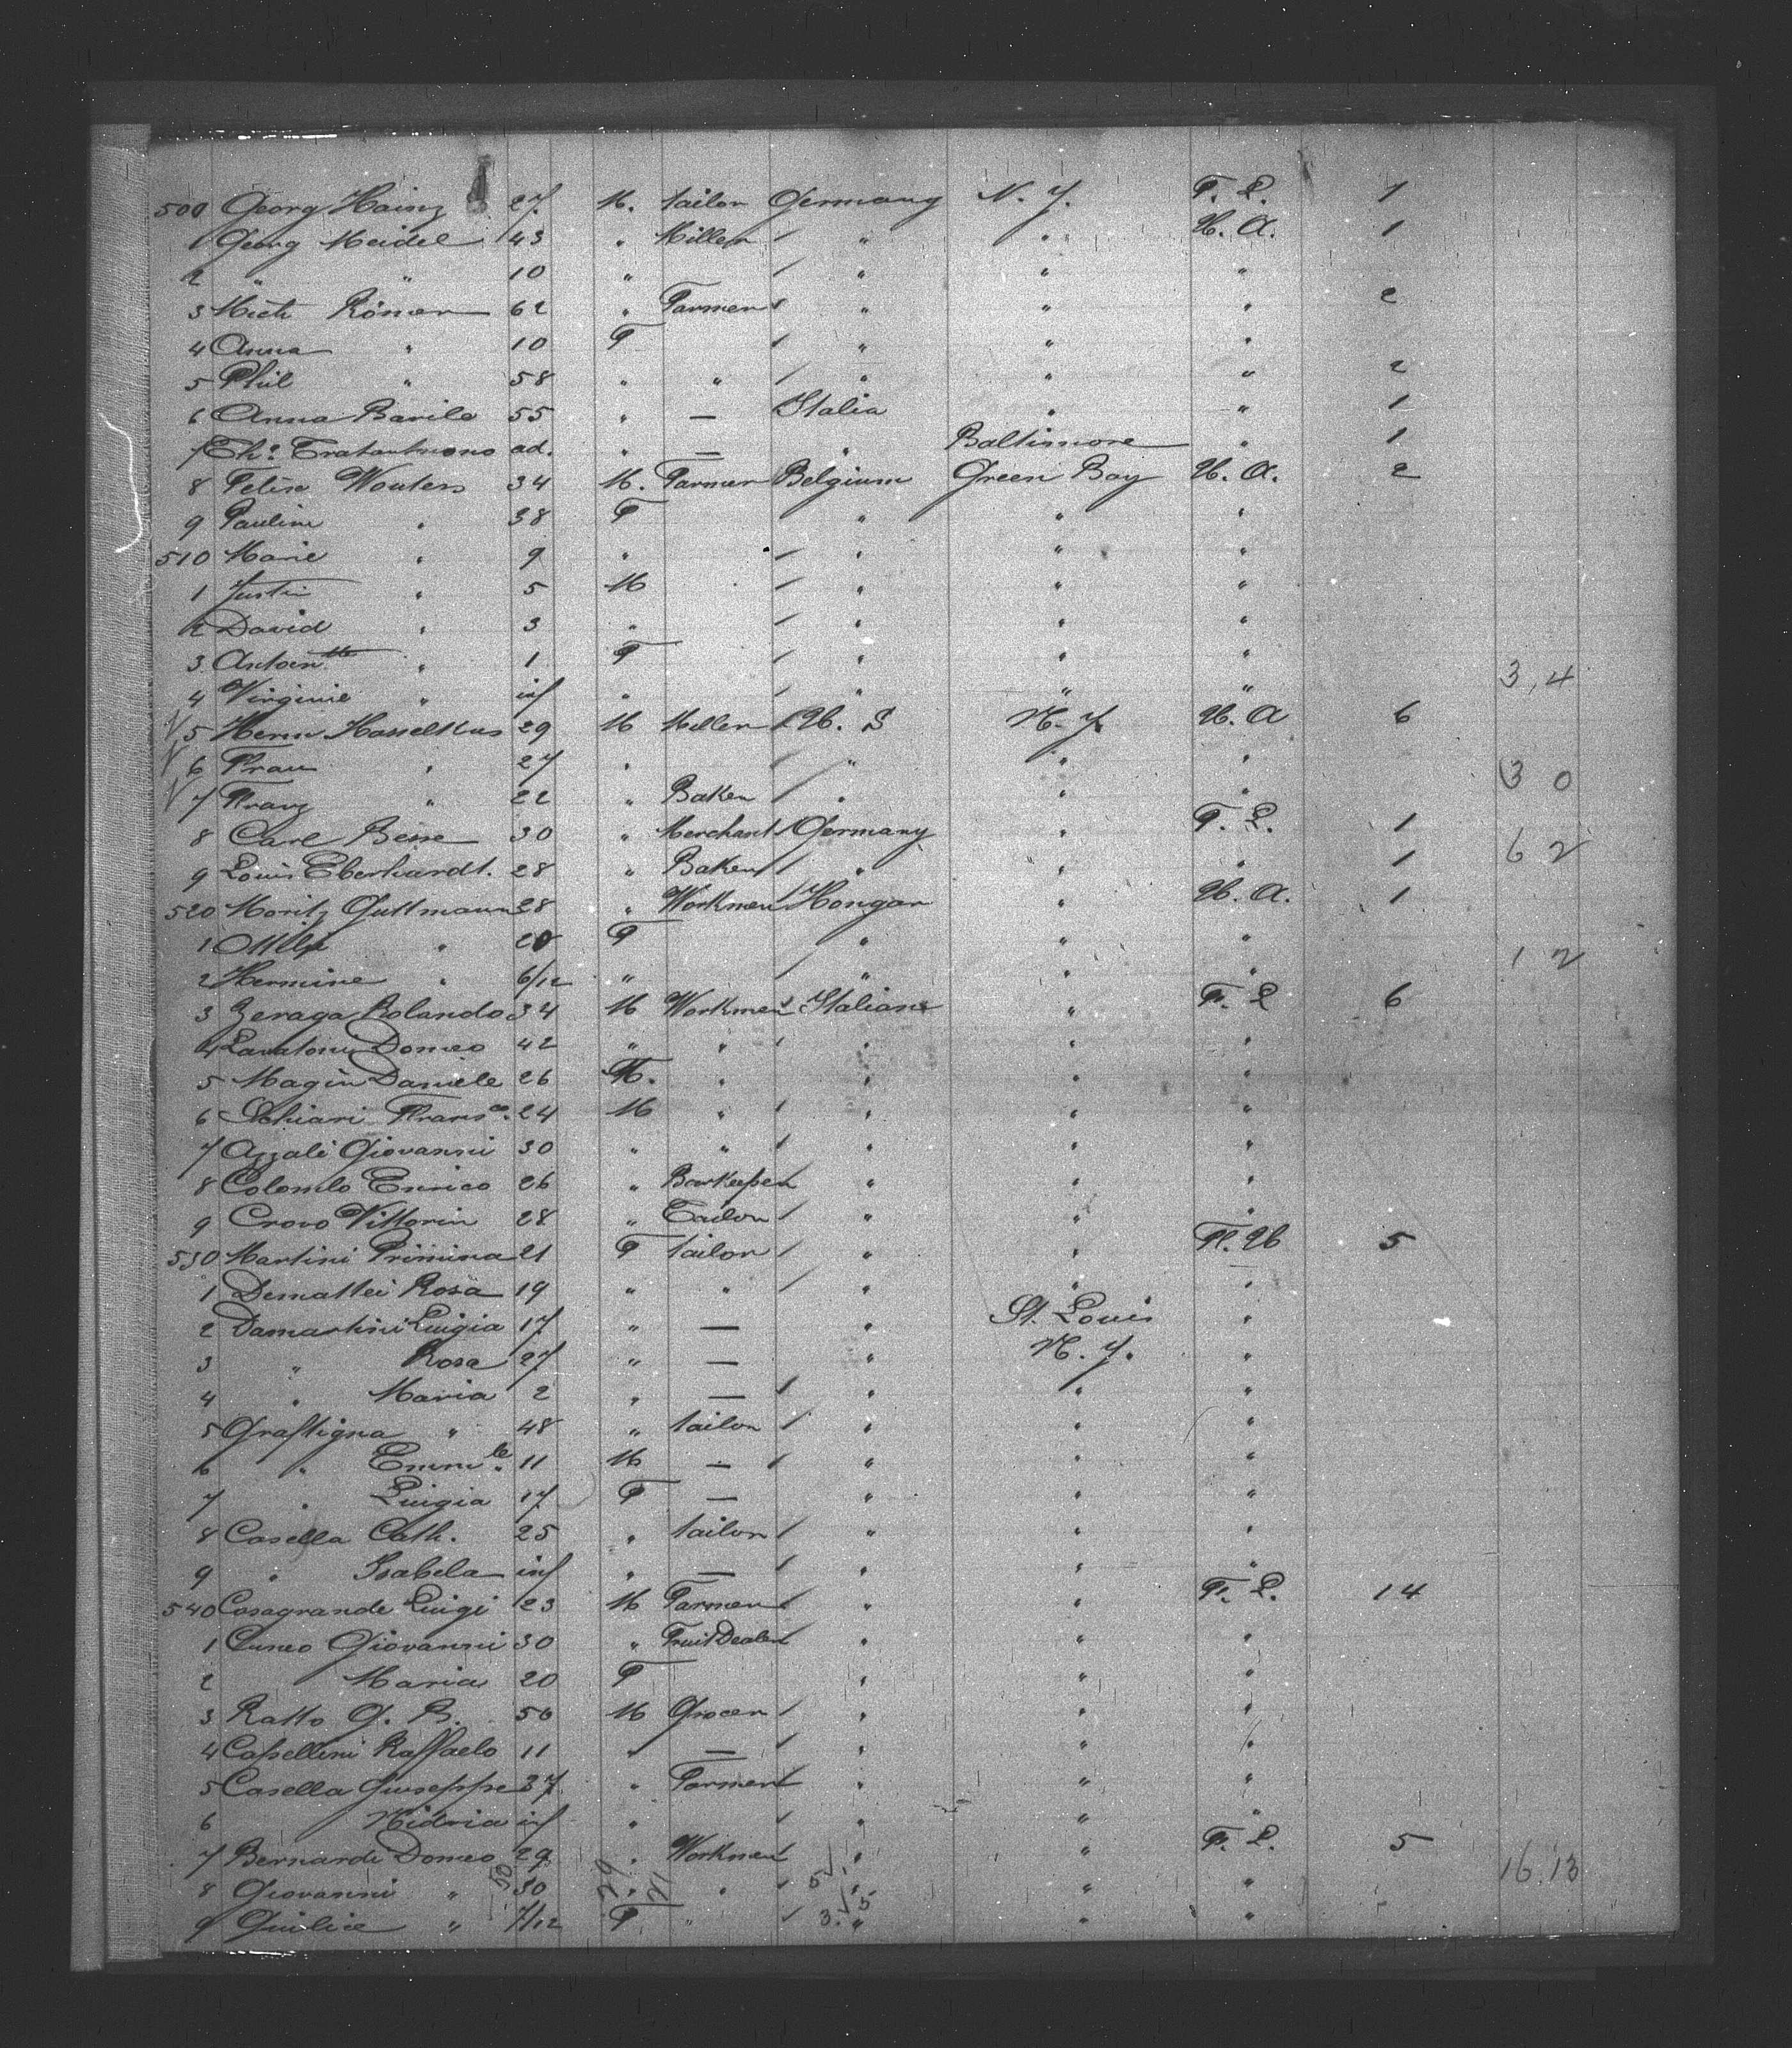 500 Georg Hainz 27 M. tailor Germany N. Y. F. L. 1
1 Georg Meidel 43 " Miller " " U. A. 1
2 " " 10 " " " "
3 Mich Römer 62 " Farmer " " " 2
4 Anna " 10 F " " "
5 Phil " 58 " " " " " 2
6 Anna Barile 55 " — Italia " " 1
7 ad. " — " Baltimore " 1
8 Felix Wouters 34 M. Farmer Belgium Green Bay U. A. 2
9 Pauline " 38 F " " "
510 Marie " 9 " " " "
1 Justin " 5 M " " "
2 David " 3 " " " "
3 Antoinette " 1 F " " "
4 Virginie " inf " " " " 3, 4
5 Herm Hasselkus 29 M Miller U. S N. Y. U. A 6
6 Frau " 27 " " " "
7 Franz " 22 " Baker " " " 3 0
8 Carl Beise 30 " Merchant Germany " F. L. 1
9 Louis Eberhardt. 28 " Baker " " " 1 6 2
520 Moritz Guttmann 28 " Workmen Hongar " U. A. 1
1 " 20 F " " "
2 Hermine " 6/12 " " " " 1 2
3 Zeraga Rolando 34 M Workmen Italians " F. L 6
4 Domeo 42 " " " " "
5 Magin Daniele 26 M. " " " "
6 Schiari Frans co. 24 M " " " "
7 Azzali Giovanni 30 " " " " "
8 Colombo Enrico 26 " Barkeeper " " "
9 Crovo Vittorin 28 " Tailor " " "
530 Martini Primina 21 F tailor " " Fl. U 5
1 Demattei Rosa 19 " " " " "
2 Damartini Luigia 17 " — " St. Louis "
3 " Rosa 27 " — " N. Y. "
4 " Maria 2 " — " " "
5 Grastigna " 48 " tailor " " "
6 " Emm le. 11 M — " " "
7 " Luigia 17 F — " " "
8 Casella Cath. 25 " tailor " " "
9 " Isabela inf " — " " "
540 Casagrande Luigi 23 M Farmer " " F. L. 14
1 Cuneo Giovanni 30 " Fruit Dealer " " "
2 Maria 20 F " " "
3 Ratto G. B. 50 M Grocer " " "
4 Casellini Raffaelo 11 " — " " "
5 Casella Giuseppe 37 " Farmer " " "
6 Midria inf " " " "
7 Bernardi Domeo 29 " Workmen " " F. L. 5 16. 13
8 Giovanni " 30 " " " " "
9 Guilice " 7/12 F " " " "